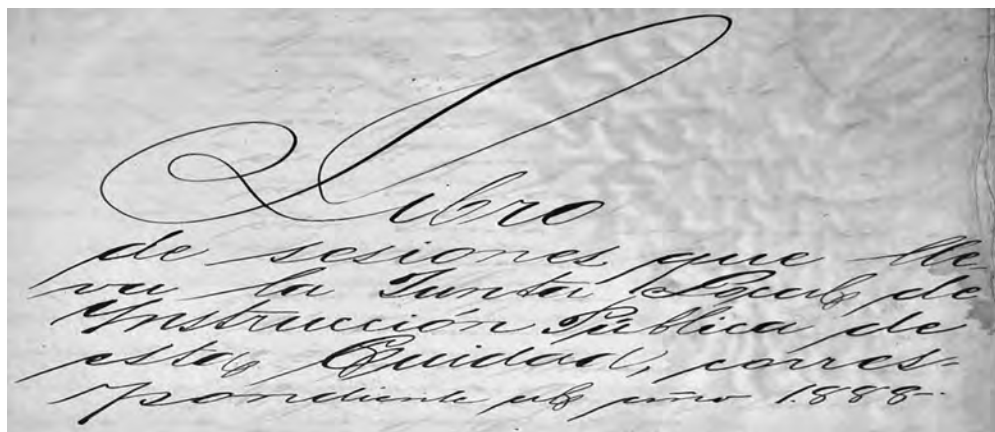 Libro
de sesiones que lle-
va la Junta Local de
Ynstrucción Pública de
esta Cuidad, corres-
pondiente al año 1888.